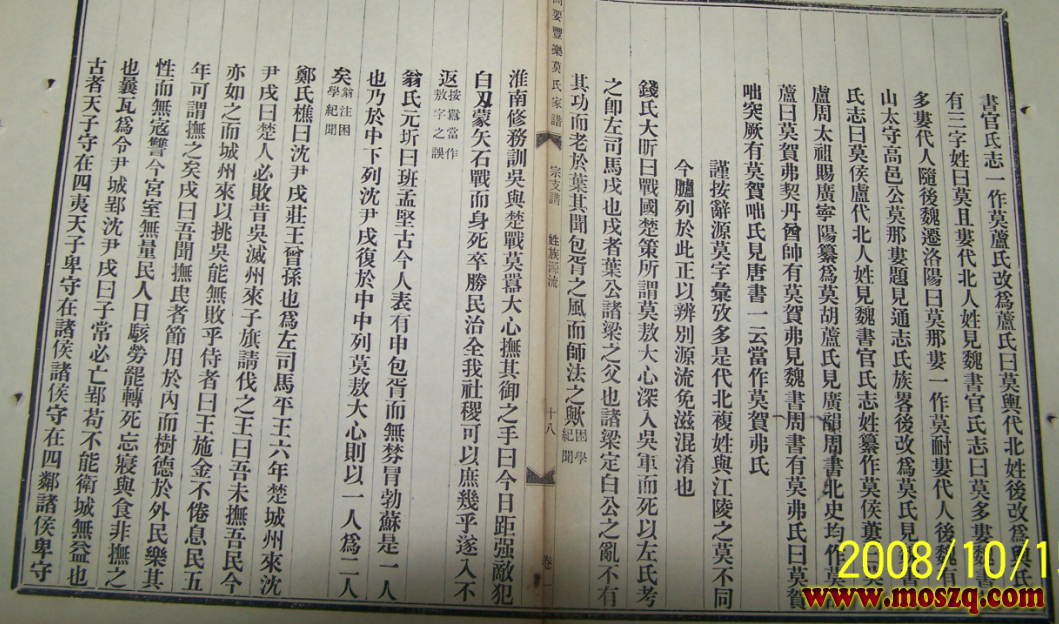 書官氏志一作莫蘆氏改爲蘆氏曰莫輿代北姓後改爲輿氏
有三字姓曰莫且婁代北人姓見魏書官氏志曰莫多婁
多婁代人隨後魏遷洛陽曰莫那婁一作莫耐婁代人後魏有
山太守高邑公莫那婁題見通志氏族畧後改爲莫氏見
氏志曰莫侯盧代北人姓見魏書官氏志姓纂作莫侯
盧周太祖賜廣寧陽纂爲莫胡蘆氏見廣韻周書北史均作莫
蘆曰莫賀弗契丹酋帥有莫賀弗見魏書周書有莫弗氏曰莫賀
咄突厥有莫賀咄氏見唐書一云當作莫賀弗氏
謹按辭源莫字彙攷多是代北複姓與江陵之莫不同
今臚列於此正以辨別源流免滋混淆也
錢氏大昕曰戰國楚策所謂莫敖大心深入吳軍而死以左氏考
之卽左司馬戌也戌者葉公諸梁之父也諸梁定白公之亂不有
其功而老於葉其聞包胥之風而師法之歟困學紀聞
要豐樂莫氏家譜 宗支譜 姓族源流 十八 卷一
淮南修務訓吳與楚戰莫囂大心撫其御之手曰今日距强敵犯
白刃蒙矢石戰而身死卒勝民治全我社稷可以庶幾乎遂入不
返按囂當作敖字之誤
翁氏元圻曰班孟堅古今人表有申包胥而無棼冒勃蘇是一人
也乃於中下列沈尹戌復於中中列莫敖大心則以一人爲二人
矣翁注困學紀聞
鄭氏樵曰沈尹戌莊王曾孫也爲左司馬平王六年楚城州來沈
尹戌曰楚人必敗昔吳滅州來子旗請伐之王曰吾未撫吾民今
亦如之而城州來以挑吳能無敗乎侍者曰王施舍不倦息民五
年可謂撫之矣戌曰吾聞撫民者節用於內而樹德於外民樂其
性而無寇讐今宮室無量民人日駭勞罷轉死忘寢與食非撫之
也曩瓦爲令尹城郢沈尹戌曰子常必亡郢苟不能衛城無益也
古者天子守在四夷天子卑守在諸侯諸侯守在四鄰諸侯卑守
2008/10/1
www.moszq.com